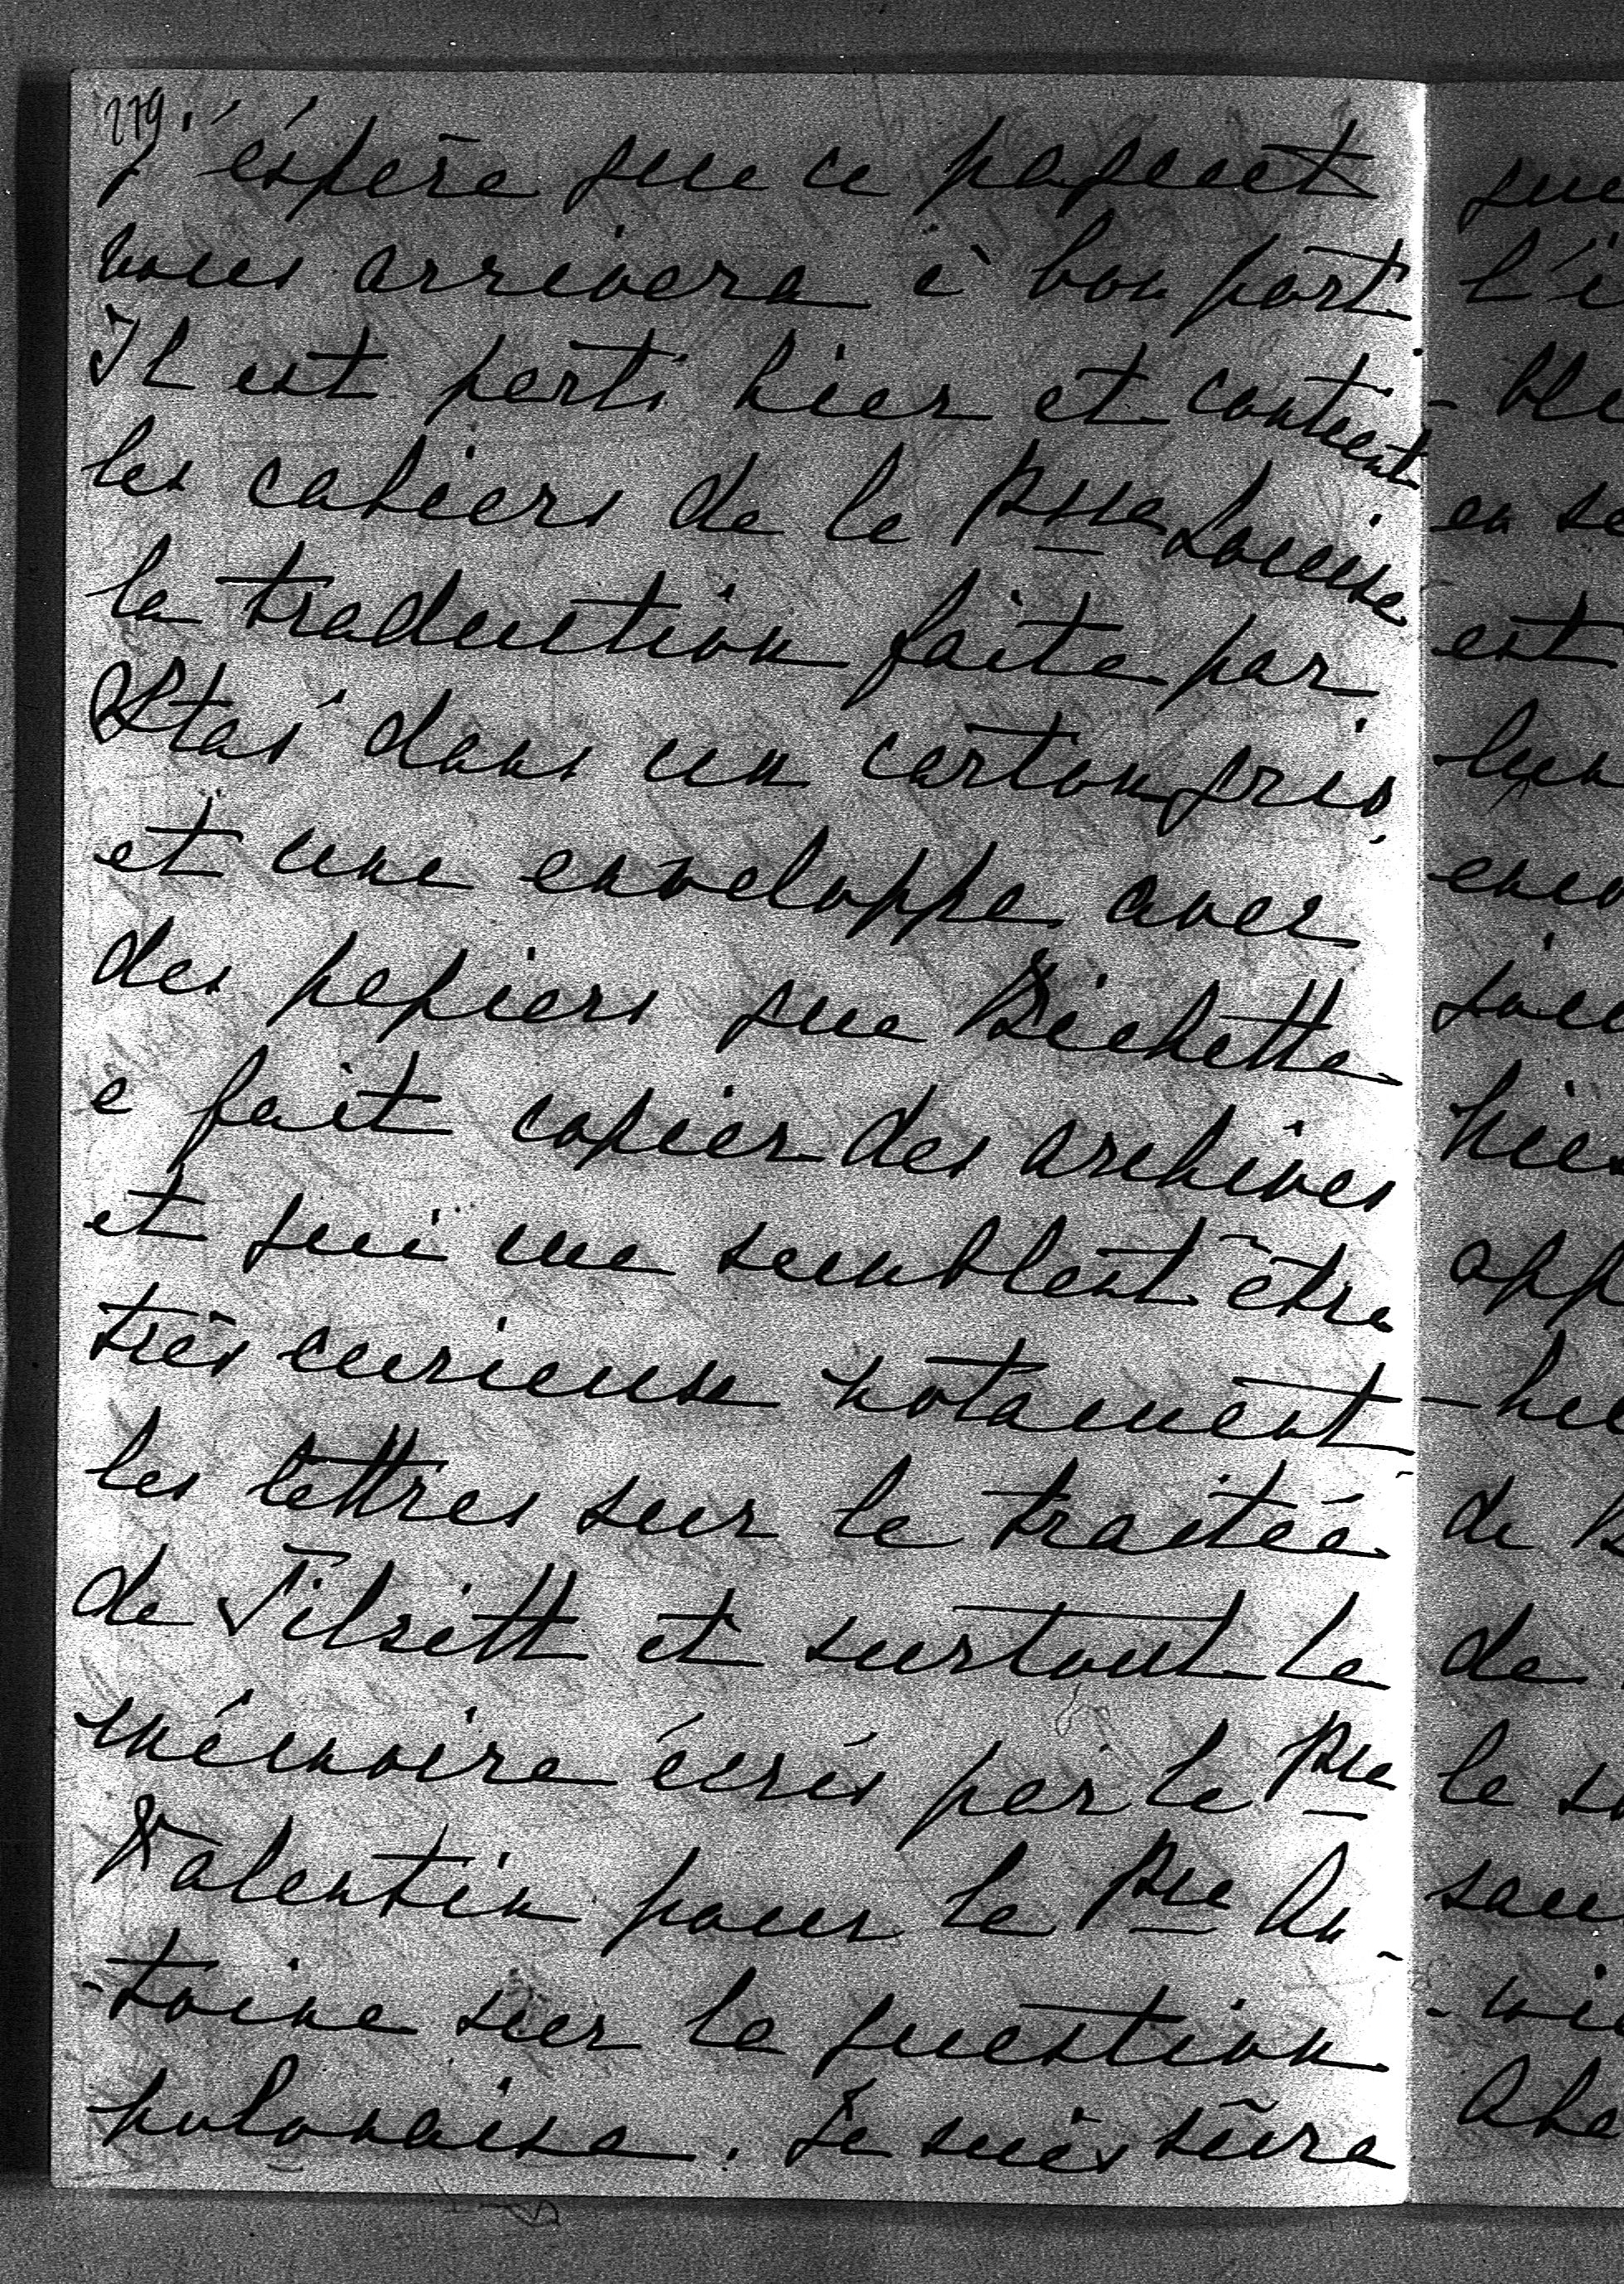 279.
j'éspère que ce paquet
vous arrivera à bon port
Il est parti hier et contient
les cahiers de la Psse Louise
la traduction faite par
Stas' dans un carton gris
et une enveloppe avec
des papiers que Bichette
a fait copier des archives
et qui me semblent être
très curieuse notament
les lettres sur le traitée
de Tilsitt et surtout le
mémoire écris par le Pce
Valentin pour le Pce An-
-toine sur la question
polonaise. Je suis sûre